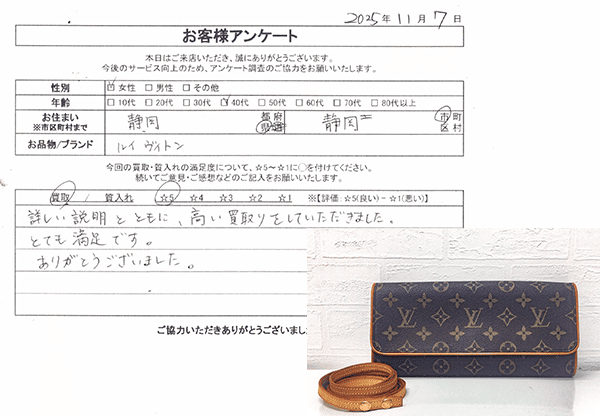 2025年11月7日
お客様アンケート
本日はご来店いただき、誠にありがとうございます。
今後のサービス向上のため、アンケート調査のご協力をお願いいたします。
性別 ☑女性 □男性 □その他
年齢 □10代 □20代 □30代 ☑40代 □50代 □60代 □70代 □80代以上
お住まい 静岡 都 府 県 道 静岡 市 町 区 村
※市区町村まで
お品物/ブランド ルイ ヴィトン
今回の買取・質入れの満足度について、☆5~☆1に○を付けてください。
続いてご意見・ご感想などのご記入をお願いいたします。
買取 / 質入れ ☆5 ☆4 ☆3 ☆2 ☆1 ※【評価:☆5(良い)-☆1(悪い)】
詳しい説明とともに、高い買取りをしていただきました。
とても満足です。
ありがとうございました。
ご協力いただきありがとうございまし